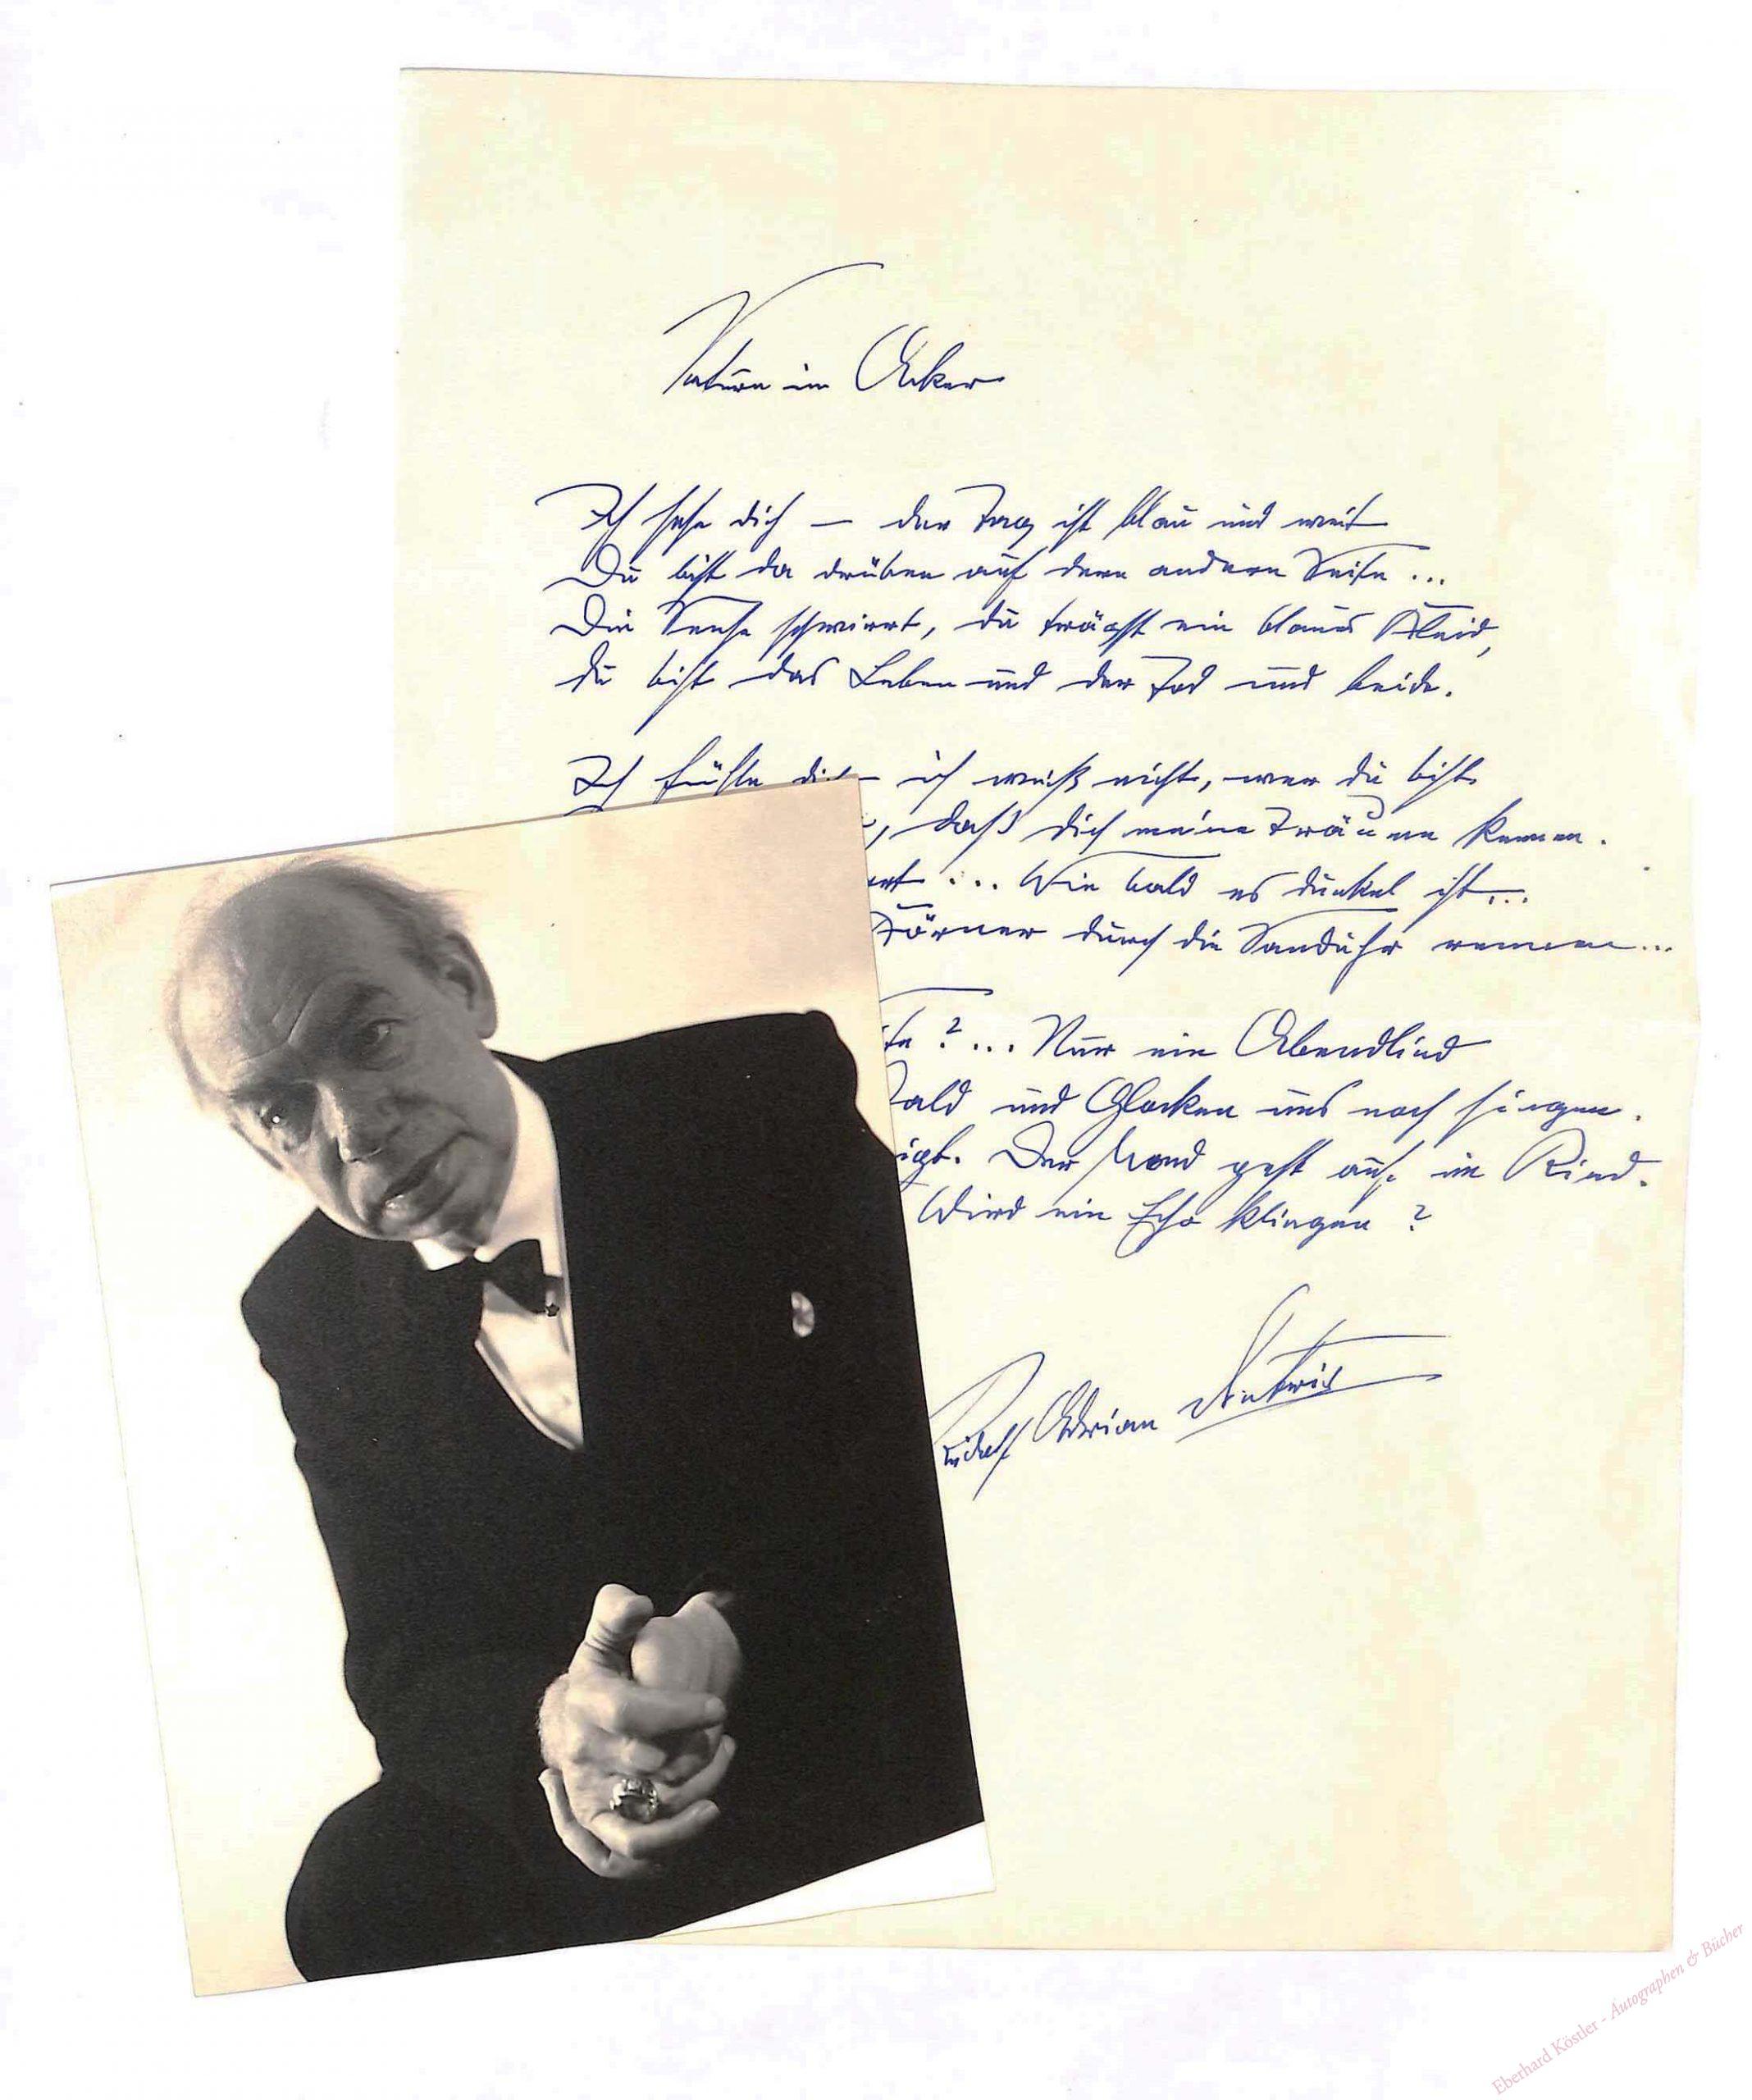 Saturn im Acker
Ich sehe dich — der Tag ist blau und weit
Du bist da drüben auf der andern Seite ...
Die Sense schwirrt, du trägst ein blaues Kleid,
du bist das Leben und der Tod und beide.
Ich fühle dich – ich weiß nicht, wer du bist
, daß dich meine Träume kennen.
rt ... Wie bald es dunkel ist ...
Körner durch die Sanduhr rennen ...
te ? ... Nur ein Abendlied
Wald und Glocken uns noch singen.
igt. Der Mond geht auf im Ried.
Wird ein Echo klingen ?
Rudolf Adrian Dietrich
Eberhard Köstler - Autographen & Bücher